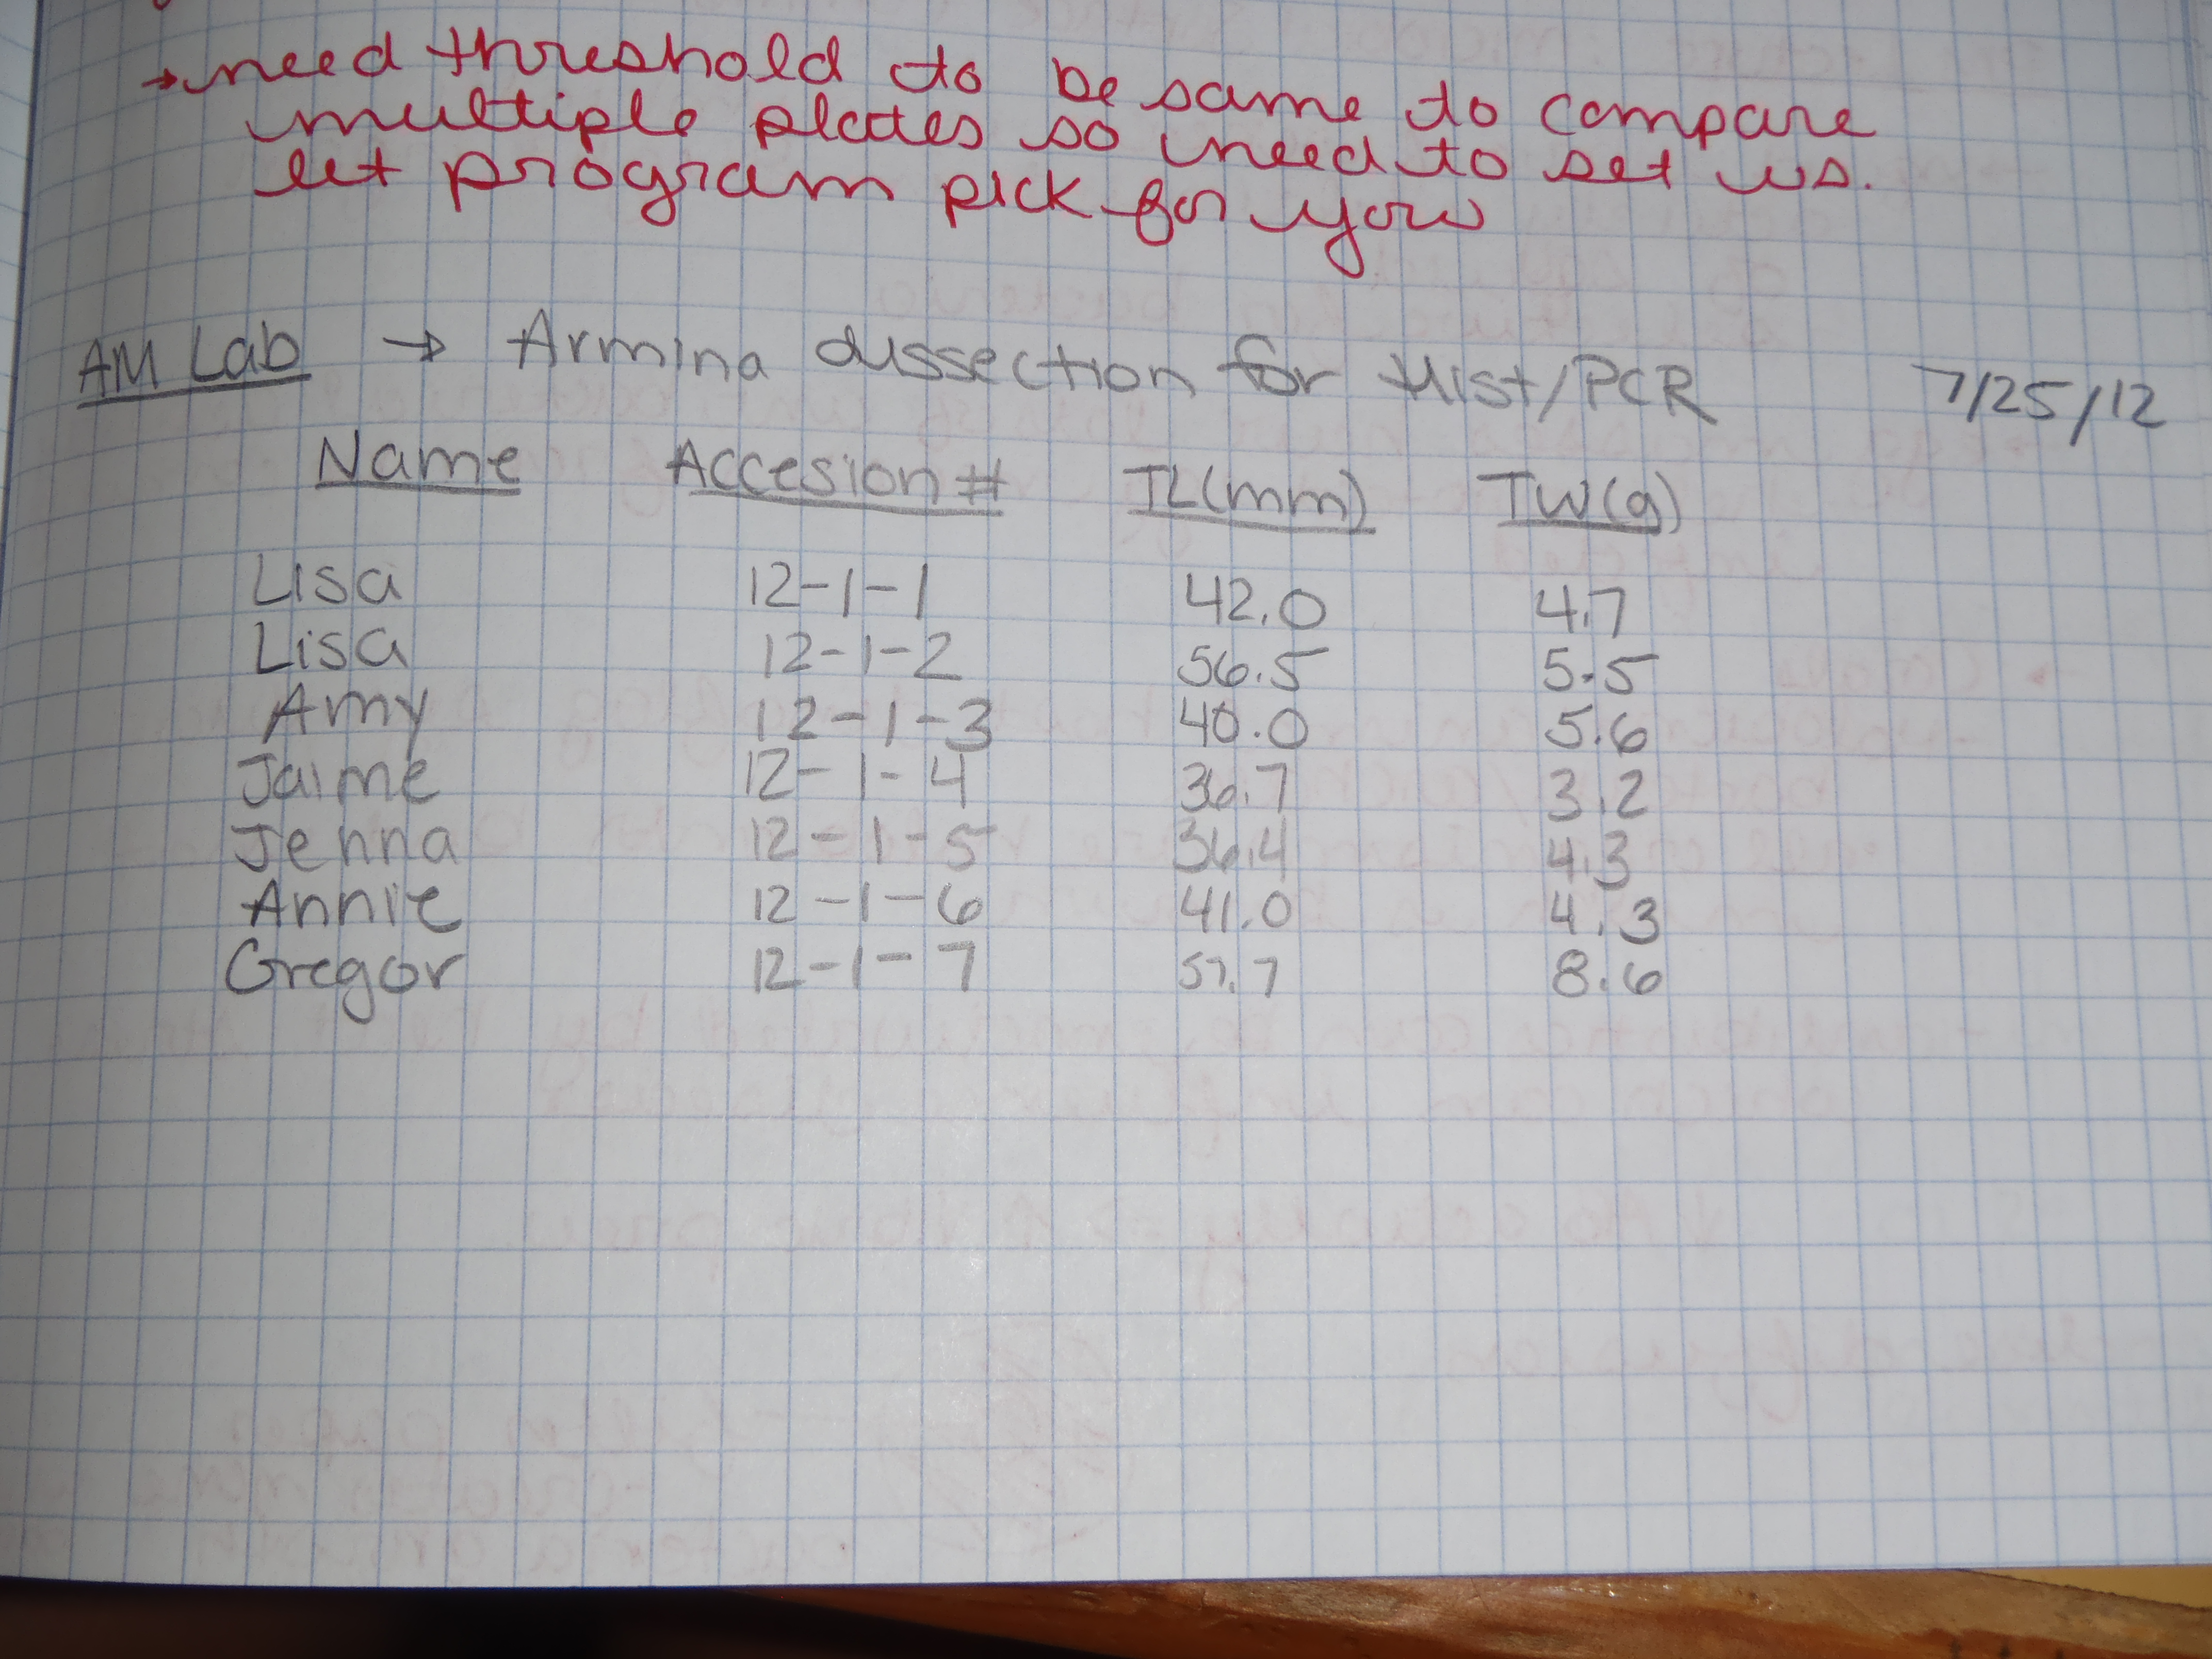 →need threshold to be same to compare
multiple plates so need to set vs.
let program pick for you
AM Lab → Armina dissection for Hist/PCR 7/25/12
Name Accesion # TL(mm) TW(g)
Lisa 12-1-1 42.0 4.7
Lisa 12-1-2 56.5 5.5
Amy 12-1-3 40.0 5.6
Jaime 12-1-4 36.7 3.2
Jenna 12-1-5 36.4 4.3
Annie 12-1-6 41.0 4.3
Gregor 12-1-7 57.7 8.6